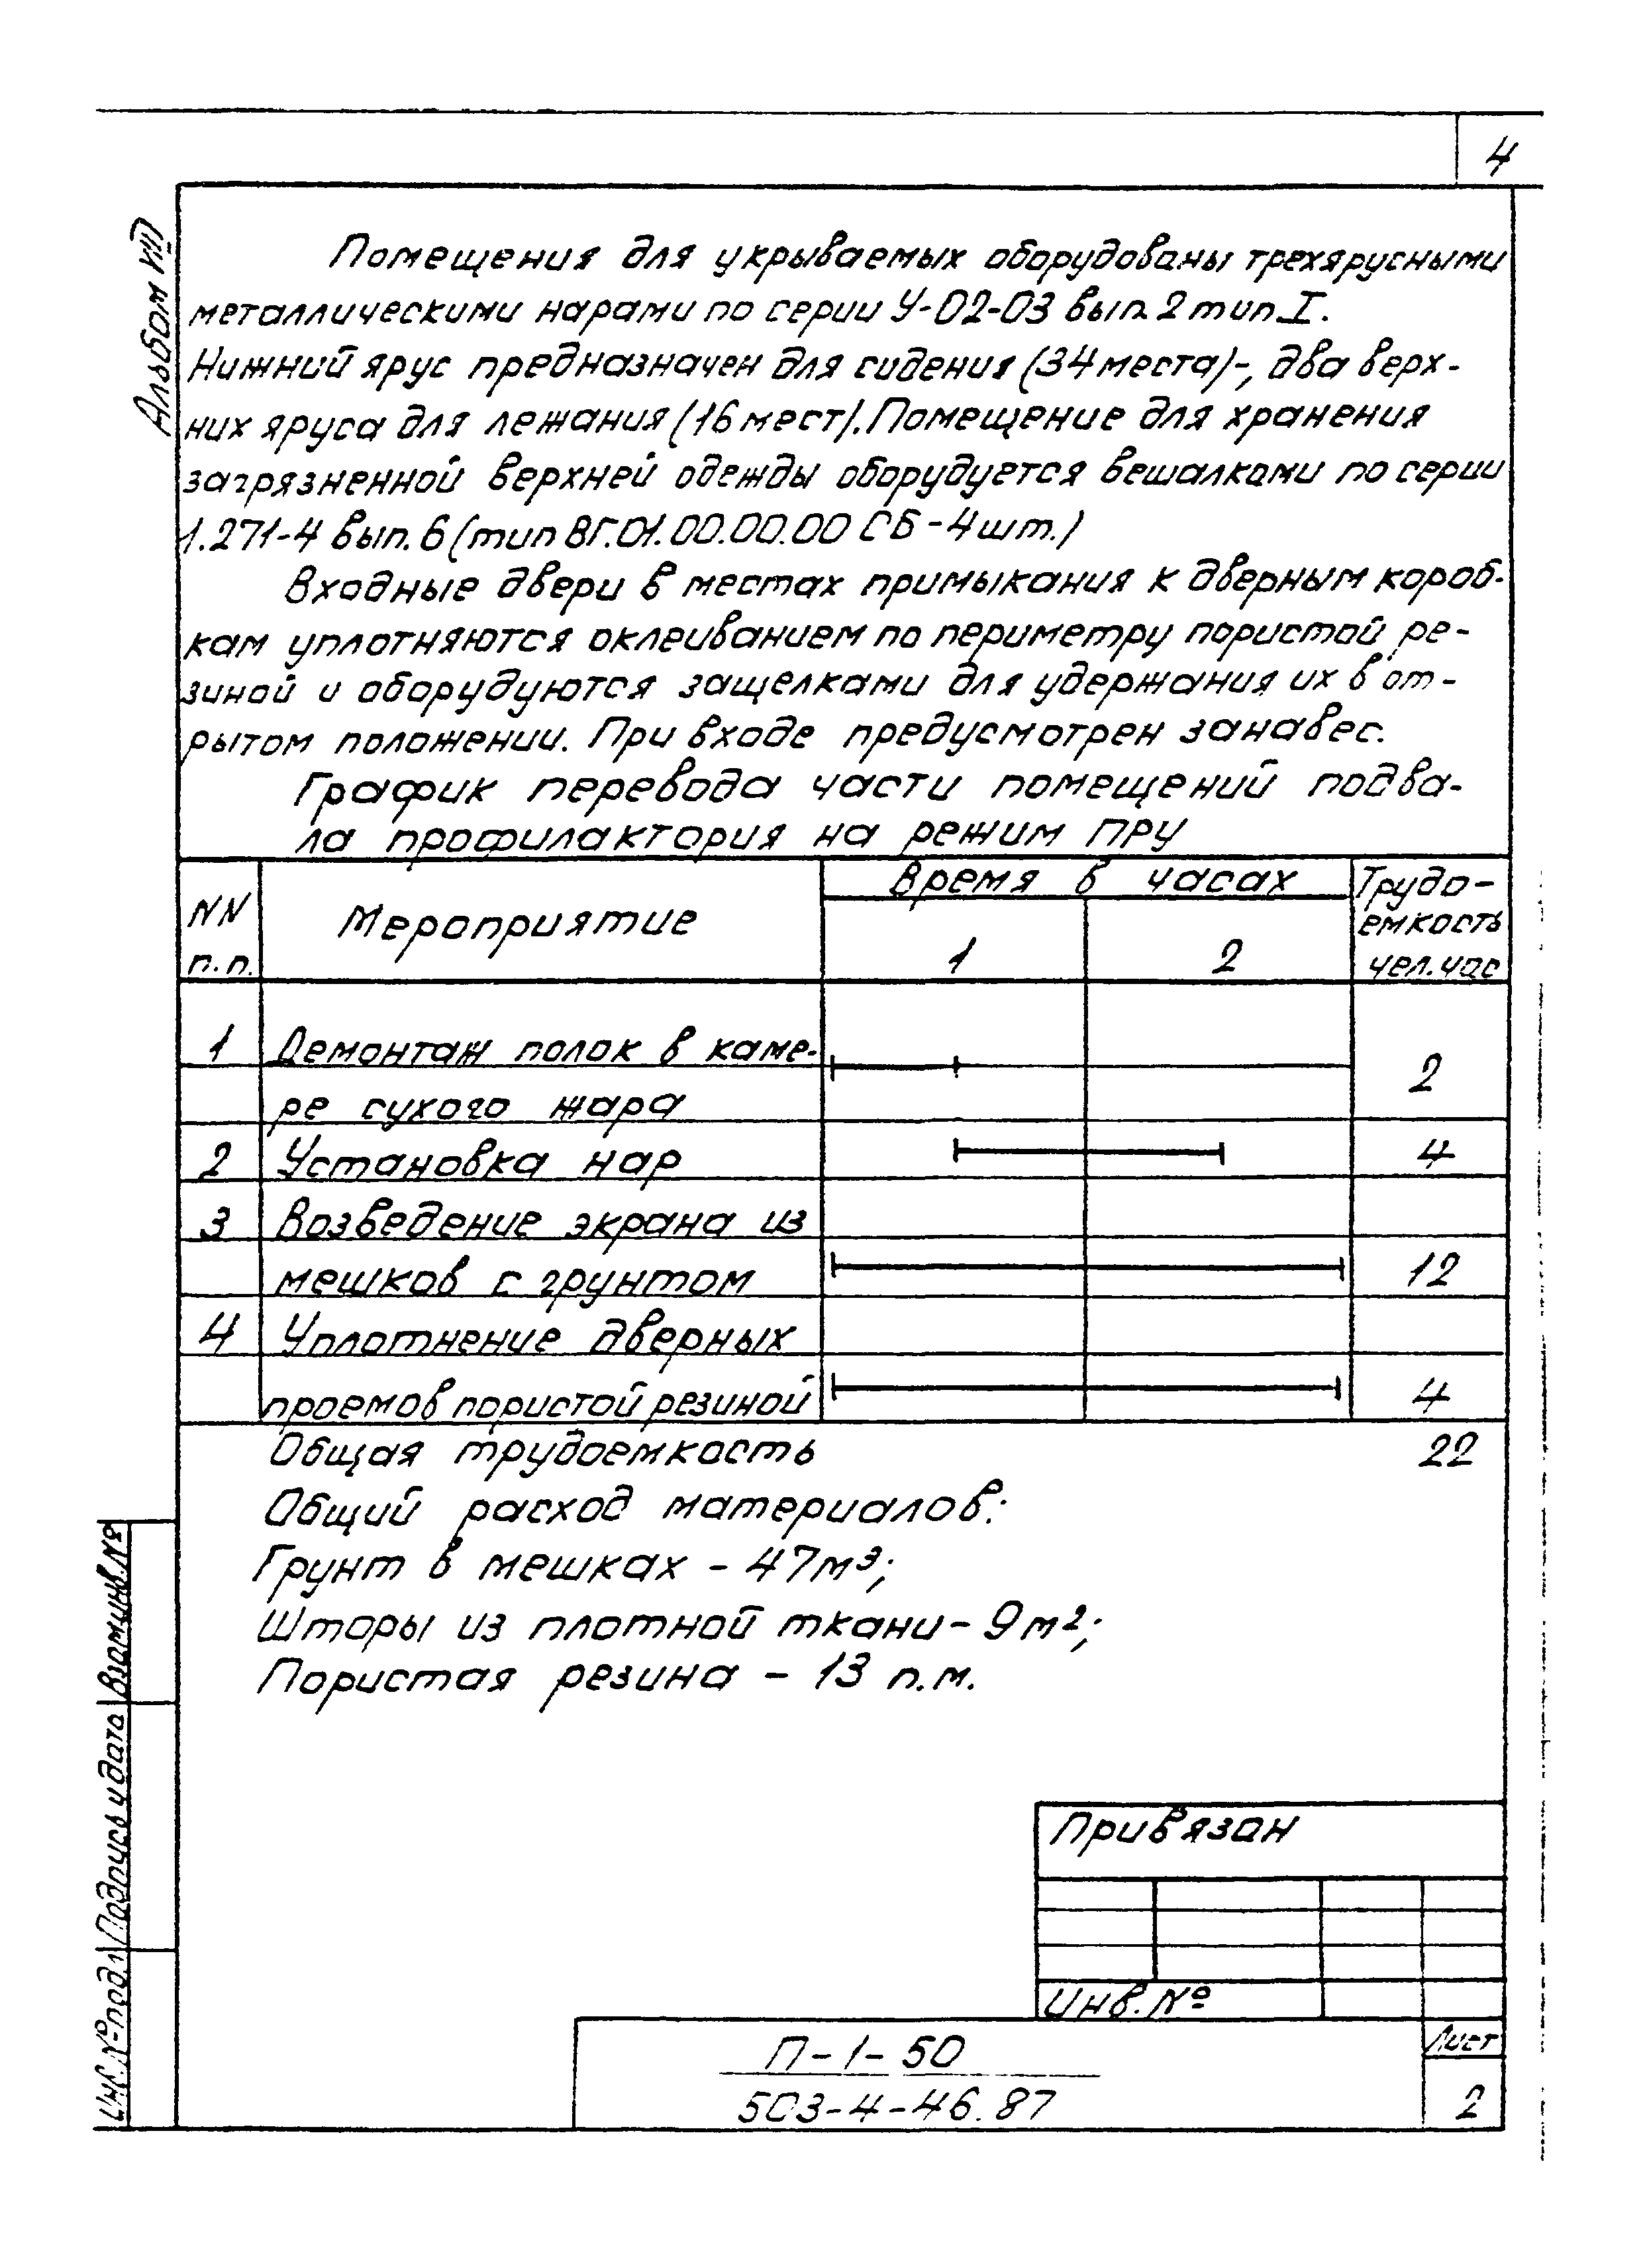 4
Альбом VIII
Помещения для укрываемых оборудованы трехярусными
металлическими нарами по серии У-02-03 вып. 2 тип I.
Нижний ярус предназначен для сидения (34 места)-, два верх-
них яруса для лежания (16 мест). Помещение для хранения
загрязненной верхней одежды оборудуется вешалками по серии
1.271-4 вып. 6 (тип ВГ.01.00.00.00 СБ - 4 шт.)
Входные двери в местах примыкания к дверным короб-
кам уплотняются оклеиванием по периметру пористой ре-
зиной и оборудуются защелками для удержания их в от-
рытом положении. При входе предусмотрен занавес.
График перевода части помещений подва-
ла профилактория на режим ПРУ
NN п.п.
Мероприятие
Время в часах
1 2
Трудо-
емкость
чел. час
1 Демонтаж полок в каме-
ре сухого жара 2
2 Установка нар 4
3 Возведение экрана из
мешков с грунтом 12
4 Уплотнение дверных
проемов пористой резиной 4
Общая трудоемкость 22
Общий расход материалов:
Грунт в мешках - 47м³;
Шторы из плотной ткани - 9м²;
Пористая резина - 13 п.м.
Взам.инв.№
Подпись и дата
Инв.№подл
Привязан
Инв.№
П-1-50
503-4-46.87
Лист
2